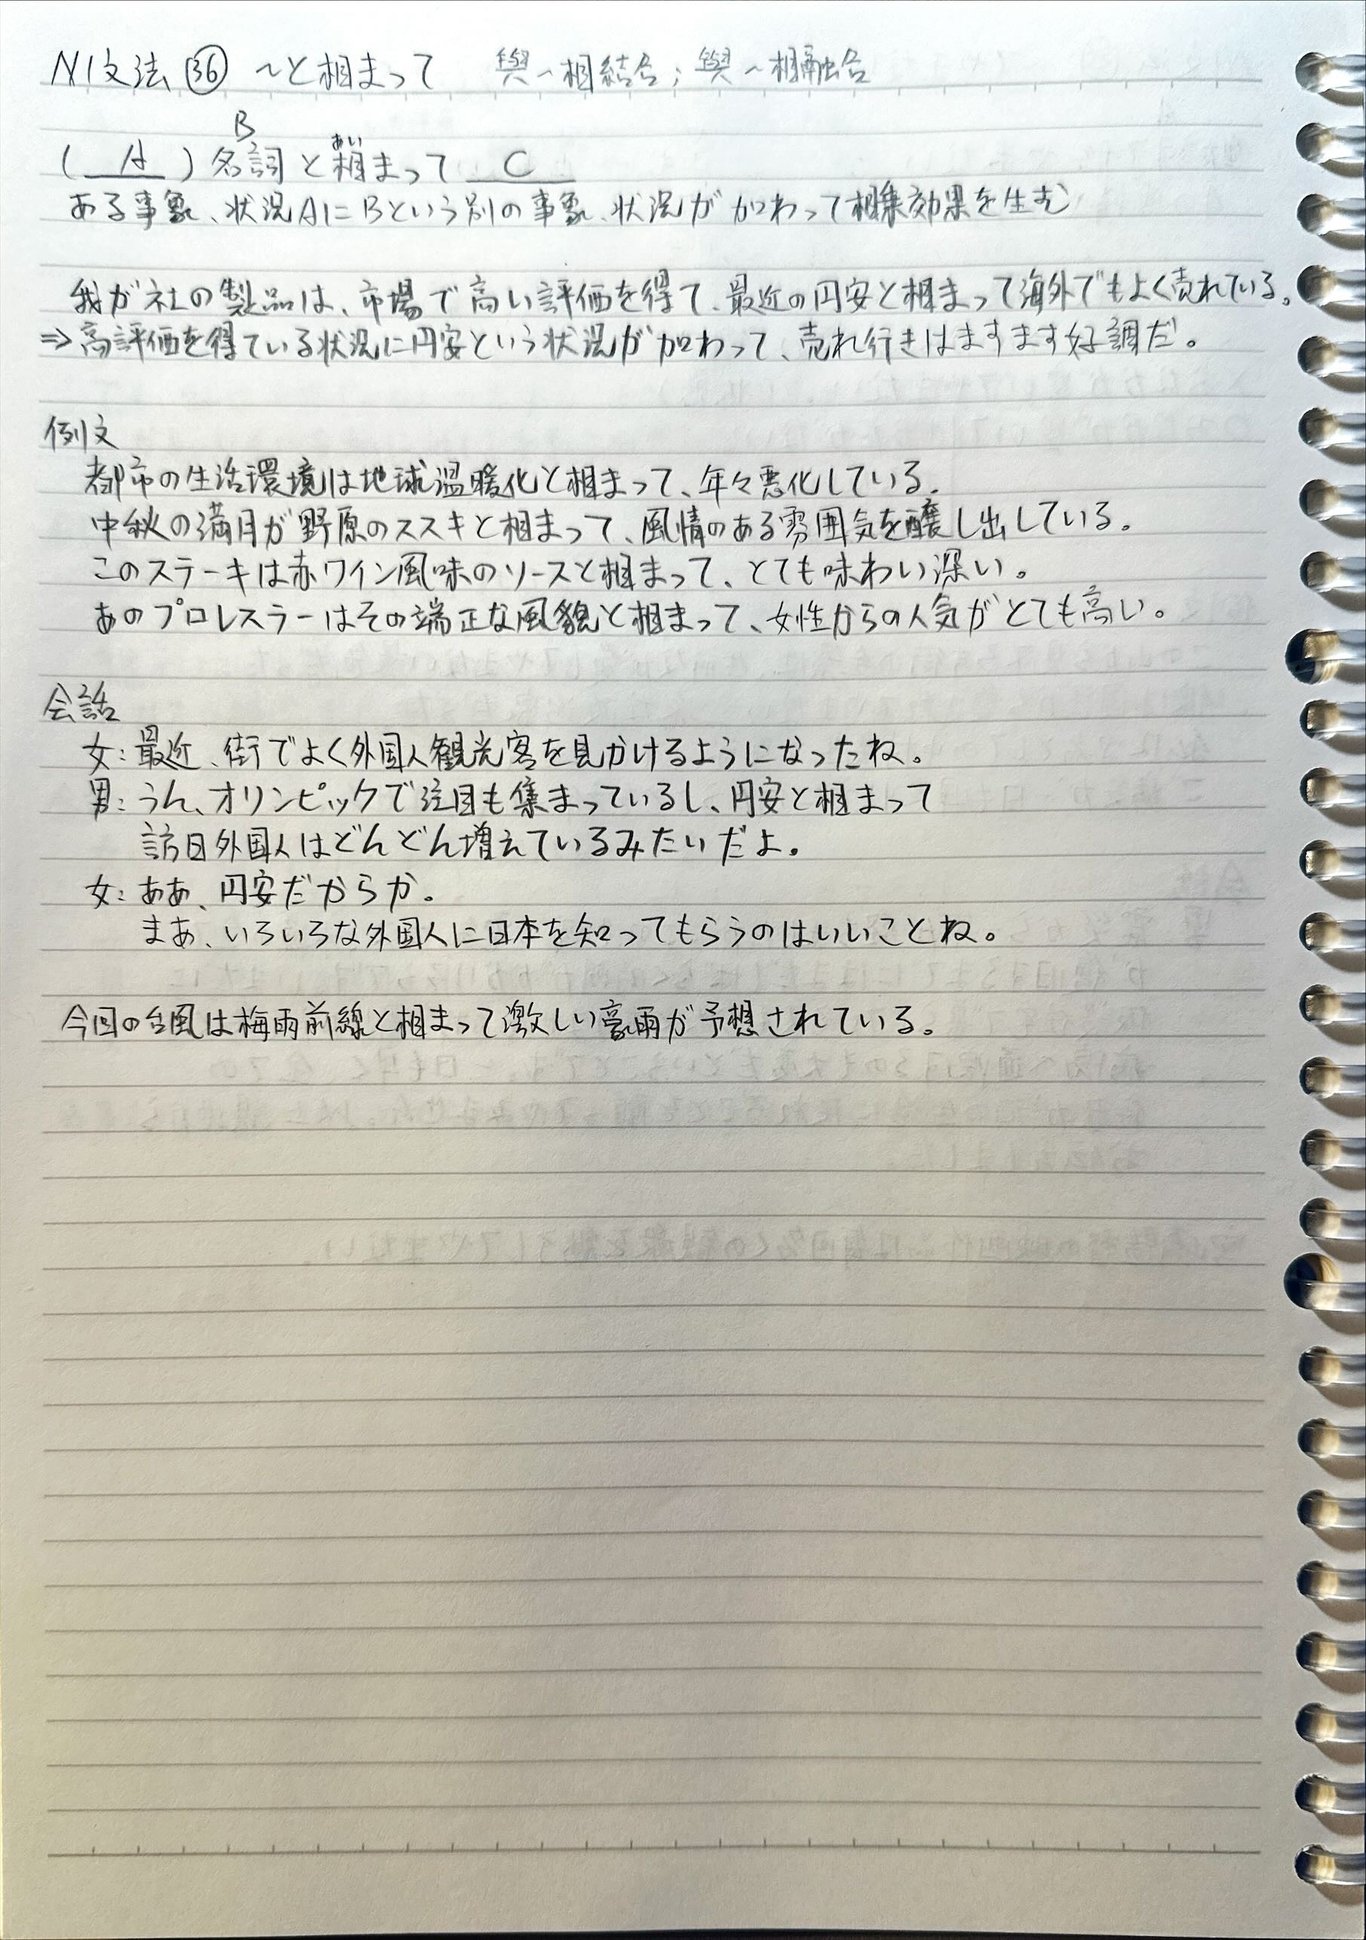 N1文法 ㊱ ～と相まって 與～相結合；與～相融合
B
あい
( A ) 名詞 と相まって C
ある事象、状況AにBという別の事象、状況が加わって相乗効果を生む
我が社の製品は、市場で高い評価を得て、最近の円安と相まって海外でもよく売れている。
⇒高評価を得ている状況に円安という状況が加わって、売れ行きはますます好調だ。
例文
都市の生活環境は地球温暖化と相まって、年々悪化している。
中秋の満月が野原のススキと相まって、風情のある雰囲気を醸し出している。
このステーキは赤ワイン風味のソースと相まって、とても味わい深い。
あのプロレスラーはその端正な風貌と相まって、女性からの人気がとても高い。
会話
女：最近、街でよく外国人観光客を見かけるようになったね。
男：うん、オリンピックで注目も集まっているし、円安と相まって
訪日外国人はどんどん増えているみたいだよ。
女：ああ、円安だからか。
まあ、いろいろな外国人に日本を知ってもらうのはいいことね。
今回の台風は梅雨前線と相まって激しい豪雨が予想されている。